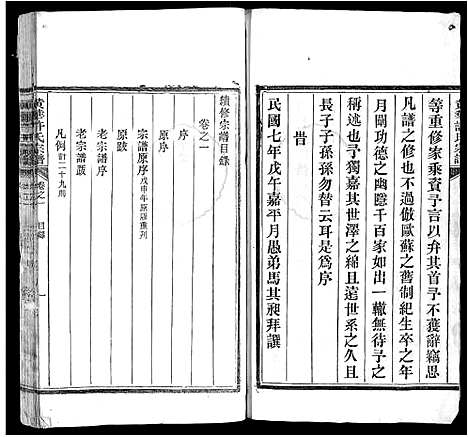 等重修家乘資予言以弁其首予不獲辭竊思
凡譜之修也不過倣歐蘇之舊制紀生卒之年
月闡功德之幽隱千百家如出一轍無待予之
稱述也予獨嘉其世澤之綿且遠世系之久且
長子子孫孫勿替云耳是為序
旹
民國七年戊午嘉平月愚弟馬其昶拜譔
續修宗譜目錄
卷之一
原序
宗譜原序戊申年原版重列
原跋
老宗譜序
老宗譜跋
凡例訂二十九則
許氏宗譜
卷之一
目錄
一